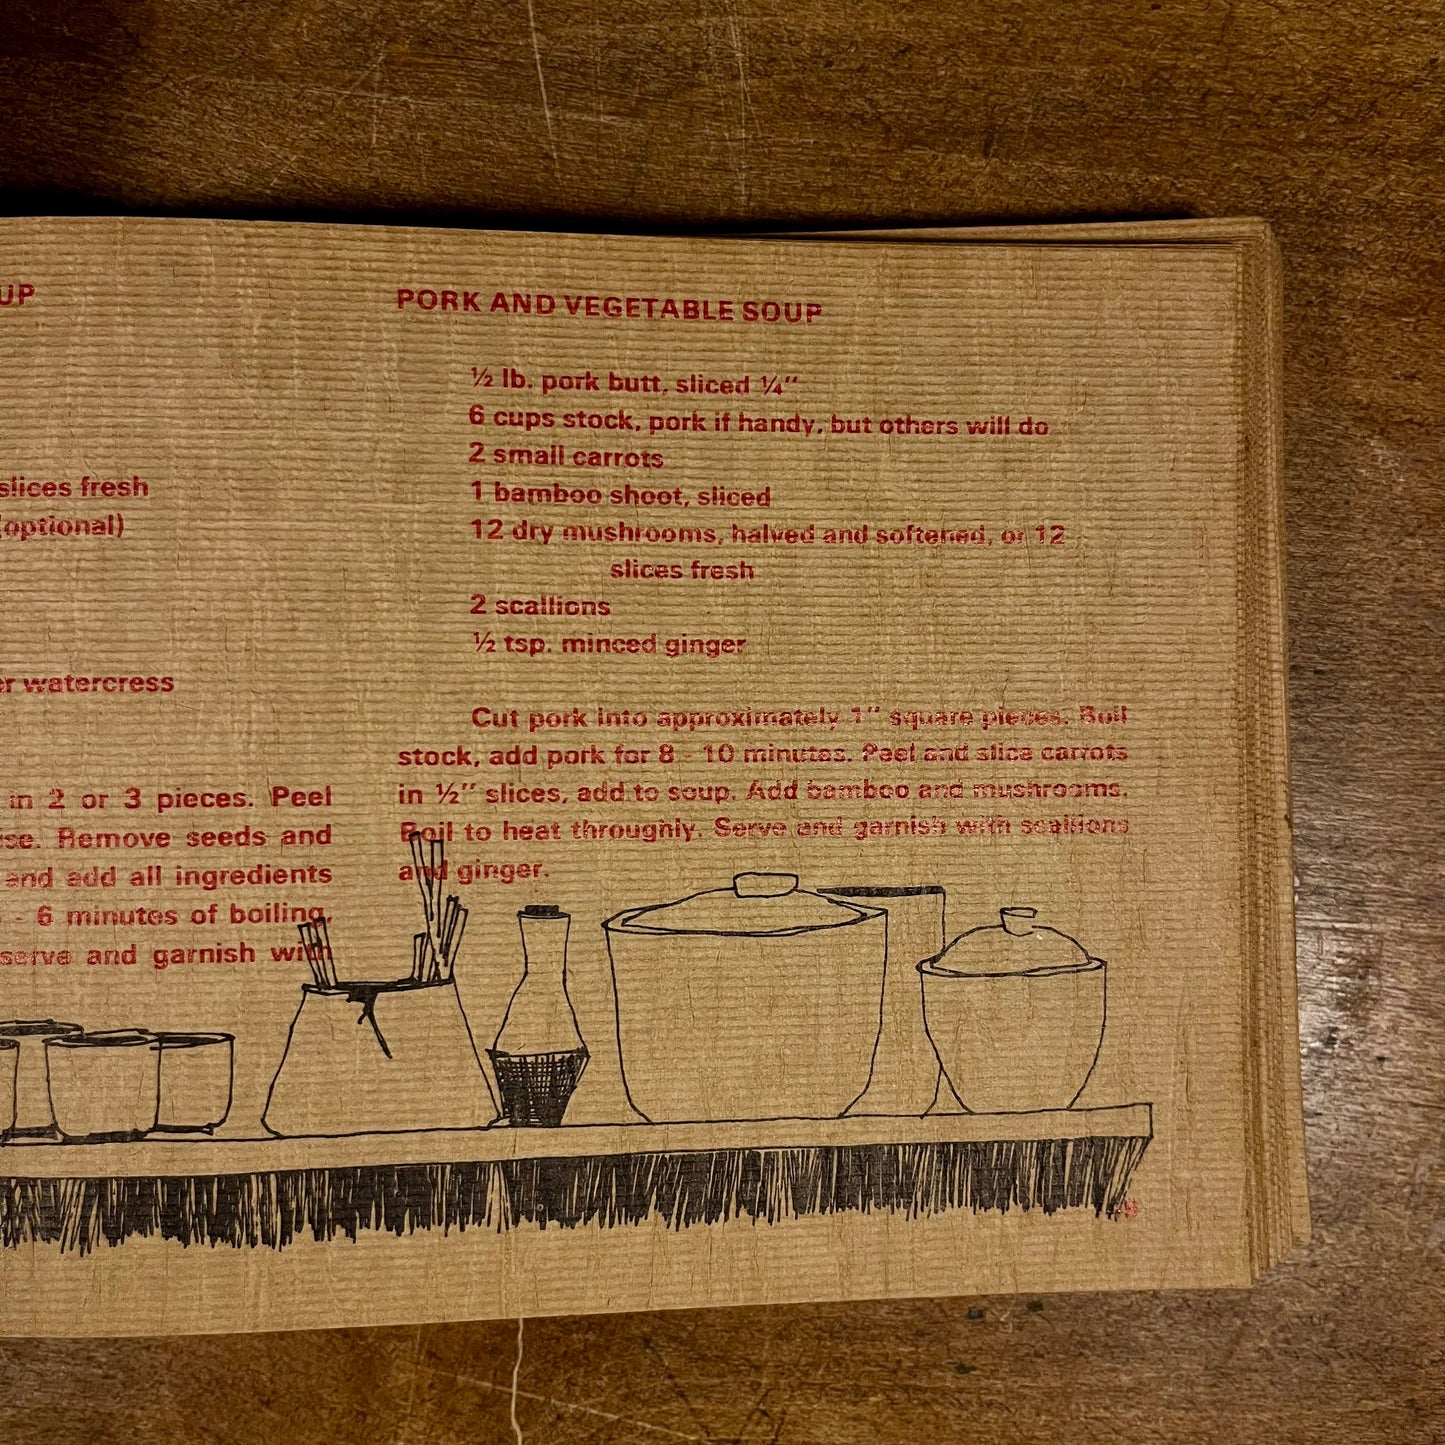 UP
slices fresh
(optional)
er watercress
in 2 or 3 pieces. Peel
se. Remove seeds and
and add all ingredients
- 6 minutes of boiling,
serve and garnish with
PORK AND VEGETABLE SOUP
½ lb. pork butt, sliced ¼"
6 cups stock, pork if handy, but others will do
2 small carrots
1 bamboo shoot, sliced
12 dry mushrooms, halved and softened, or 12
slices fresh
2 scallions
½ tsp. minced ginger
Cut pork into approximately 1" square pieces. Boil
stock, add pork for 8 - 10 minutes. Peel and slice carrots
in ½" slices, add to soup. Add bamboo and mushrooms.
Boil to heat throughly. Serve and garnish with scallions
and ginger.